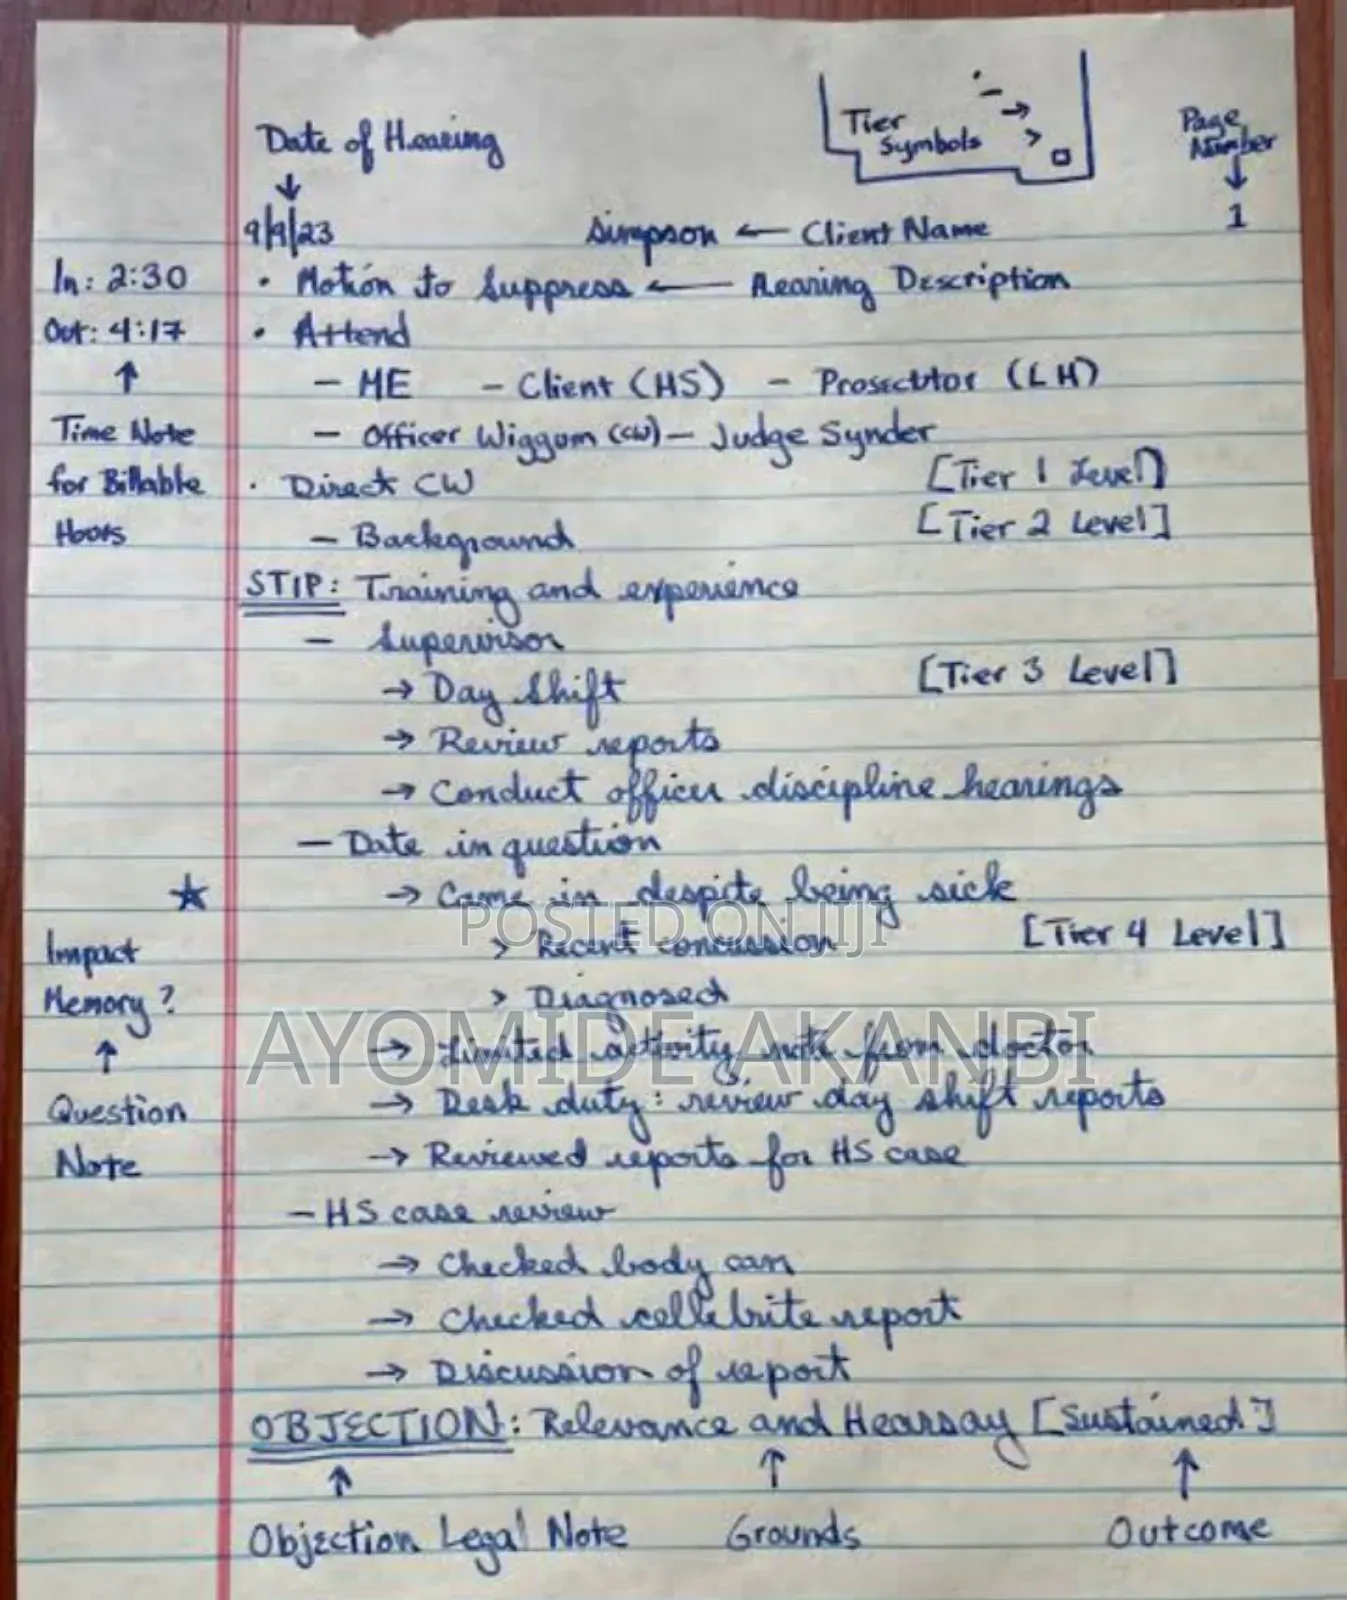 Date of Hearing
Tier Symbols · – → > □
Page Number
↓
↓
9/9/23 Simpson ← Client Name 1
In: 2:30 · Motion to Suppress ← Hearing Description
Out: 4:17 · Attend
↑ – ME – Client (HS) – Prosecutor (LH)
Time Note – Officer Wiggum (CW) – Judge Synder
for Billable · Direct CW [Tier 1 Level]
Hours – Background [Tier 2 Level]
STIP: Training and experience
– Supervisor
→ Day shift [Tier 3 Level]
→ Review reports
→ Conduct officer discipline hearings
– Date in question
★ → Came in despite being sick
POSTED ON JIJI
Impact > Recent concussion [Tier 4 Level]
Memory? > Diagnosed
AYOMIDE AKANBI
↑ → Limited activity note from doctor
Question → Desk duty: review day shift reports
Note → Reviewed reports for HS case
– HS case review
→ Checked body cam
→ Checked cellebrite report
→ Discussion of report
OBJECTION: Relevance and Hearsay [Sustained]
↑ ↑ ↑
Objection Legal Note Grounds Outcome